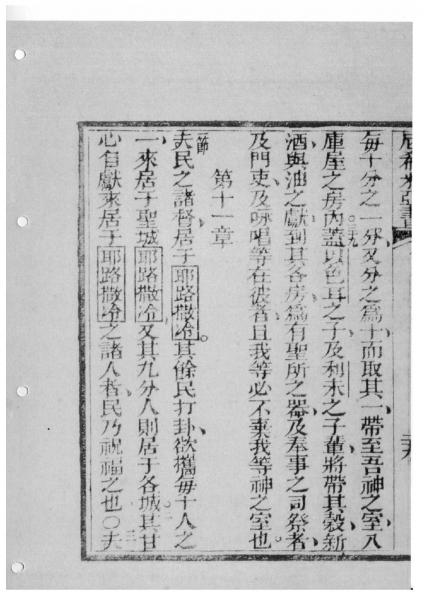 尼希米亞書
每十分之一分又分之爲十而取其一帶至吾神之室入
庫屋之房內○三九蓋以色耳之子及利未之子輩將帶其穀新
酒與油之獻到其各房爲有聖所之器及奉事之司祭者
及門吏及咏唱等在彼者且我等必不棄我等神之室也
第十一章
一節夫民之諸督居于耶路撒冷其餘民打卦欲攜每十人之
一來居于聖城耶路撒冷又其九分人則居于各城○二其甘
心自獻來居于耶路撒冷之諸人者民乃祝福之也○三夫